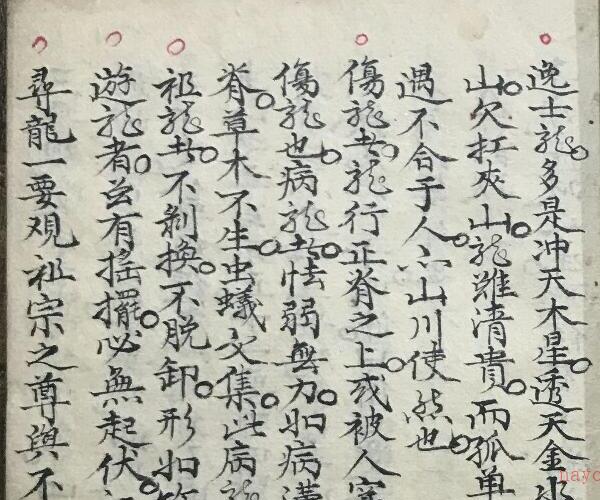 逸士龍多是冲天木星透天金水
山欠扛夾山龍雖清貴而孤单
遇不合于人亦山川使然也
傷龍者龍行正脊之上或被人
傷龍也病龍者怯弱無力如病
脊草木不生虫蟻交集此病龍
祖龍者不剝換不脱卸形如
遊龍者並有摇擺必無起伏
尋龍一要观祖宗之尊與不